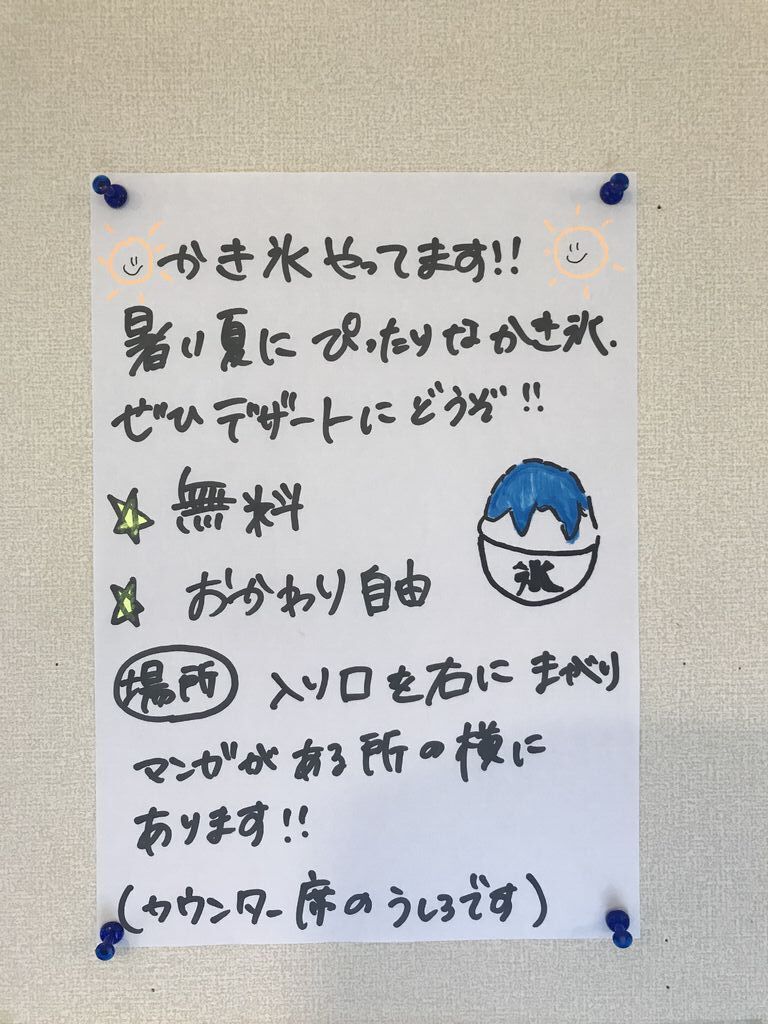 かき氷やってます!!
暑い夏にぴったりなかき氷.
ぜひデザートにどうぞ!!
無料
おかわり自由
氷
場所 入り口を右にまがり
マンガがある所の横に
あります!!
(カウンター席のうしろです)